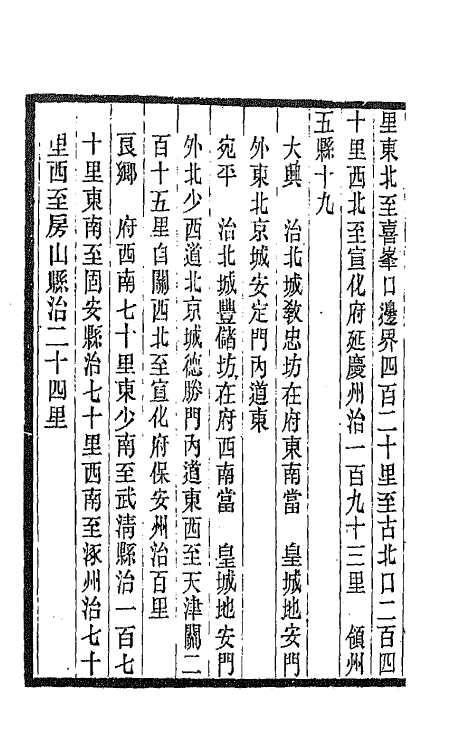 里東北至喜峯口邊界四百二十里至古北口二百四
十里西北至宣化府延慶州治一百九十三里　領州
五縣十九
大興　治北城敎忠坊在府東南當　皇城地安門
外東北京城安定門內道東
宛平　治北城豐儲坊在府西南當　皇城地安門
外北少西道北京城德勝門內道東西至天津關二
百十五里自關西北至宣化府保安州治百里
良鄉　府西南七十里東少南至武清縣治一百七
十里東南至固安縣治七十里西南至涿州治七十
里西至房山縣治二十四里